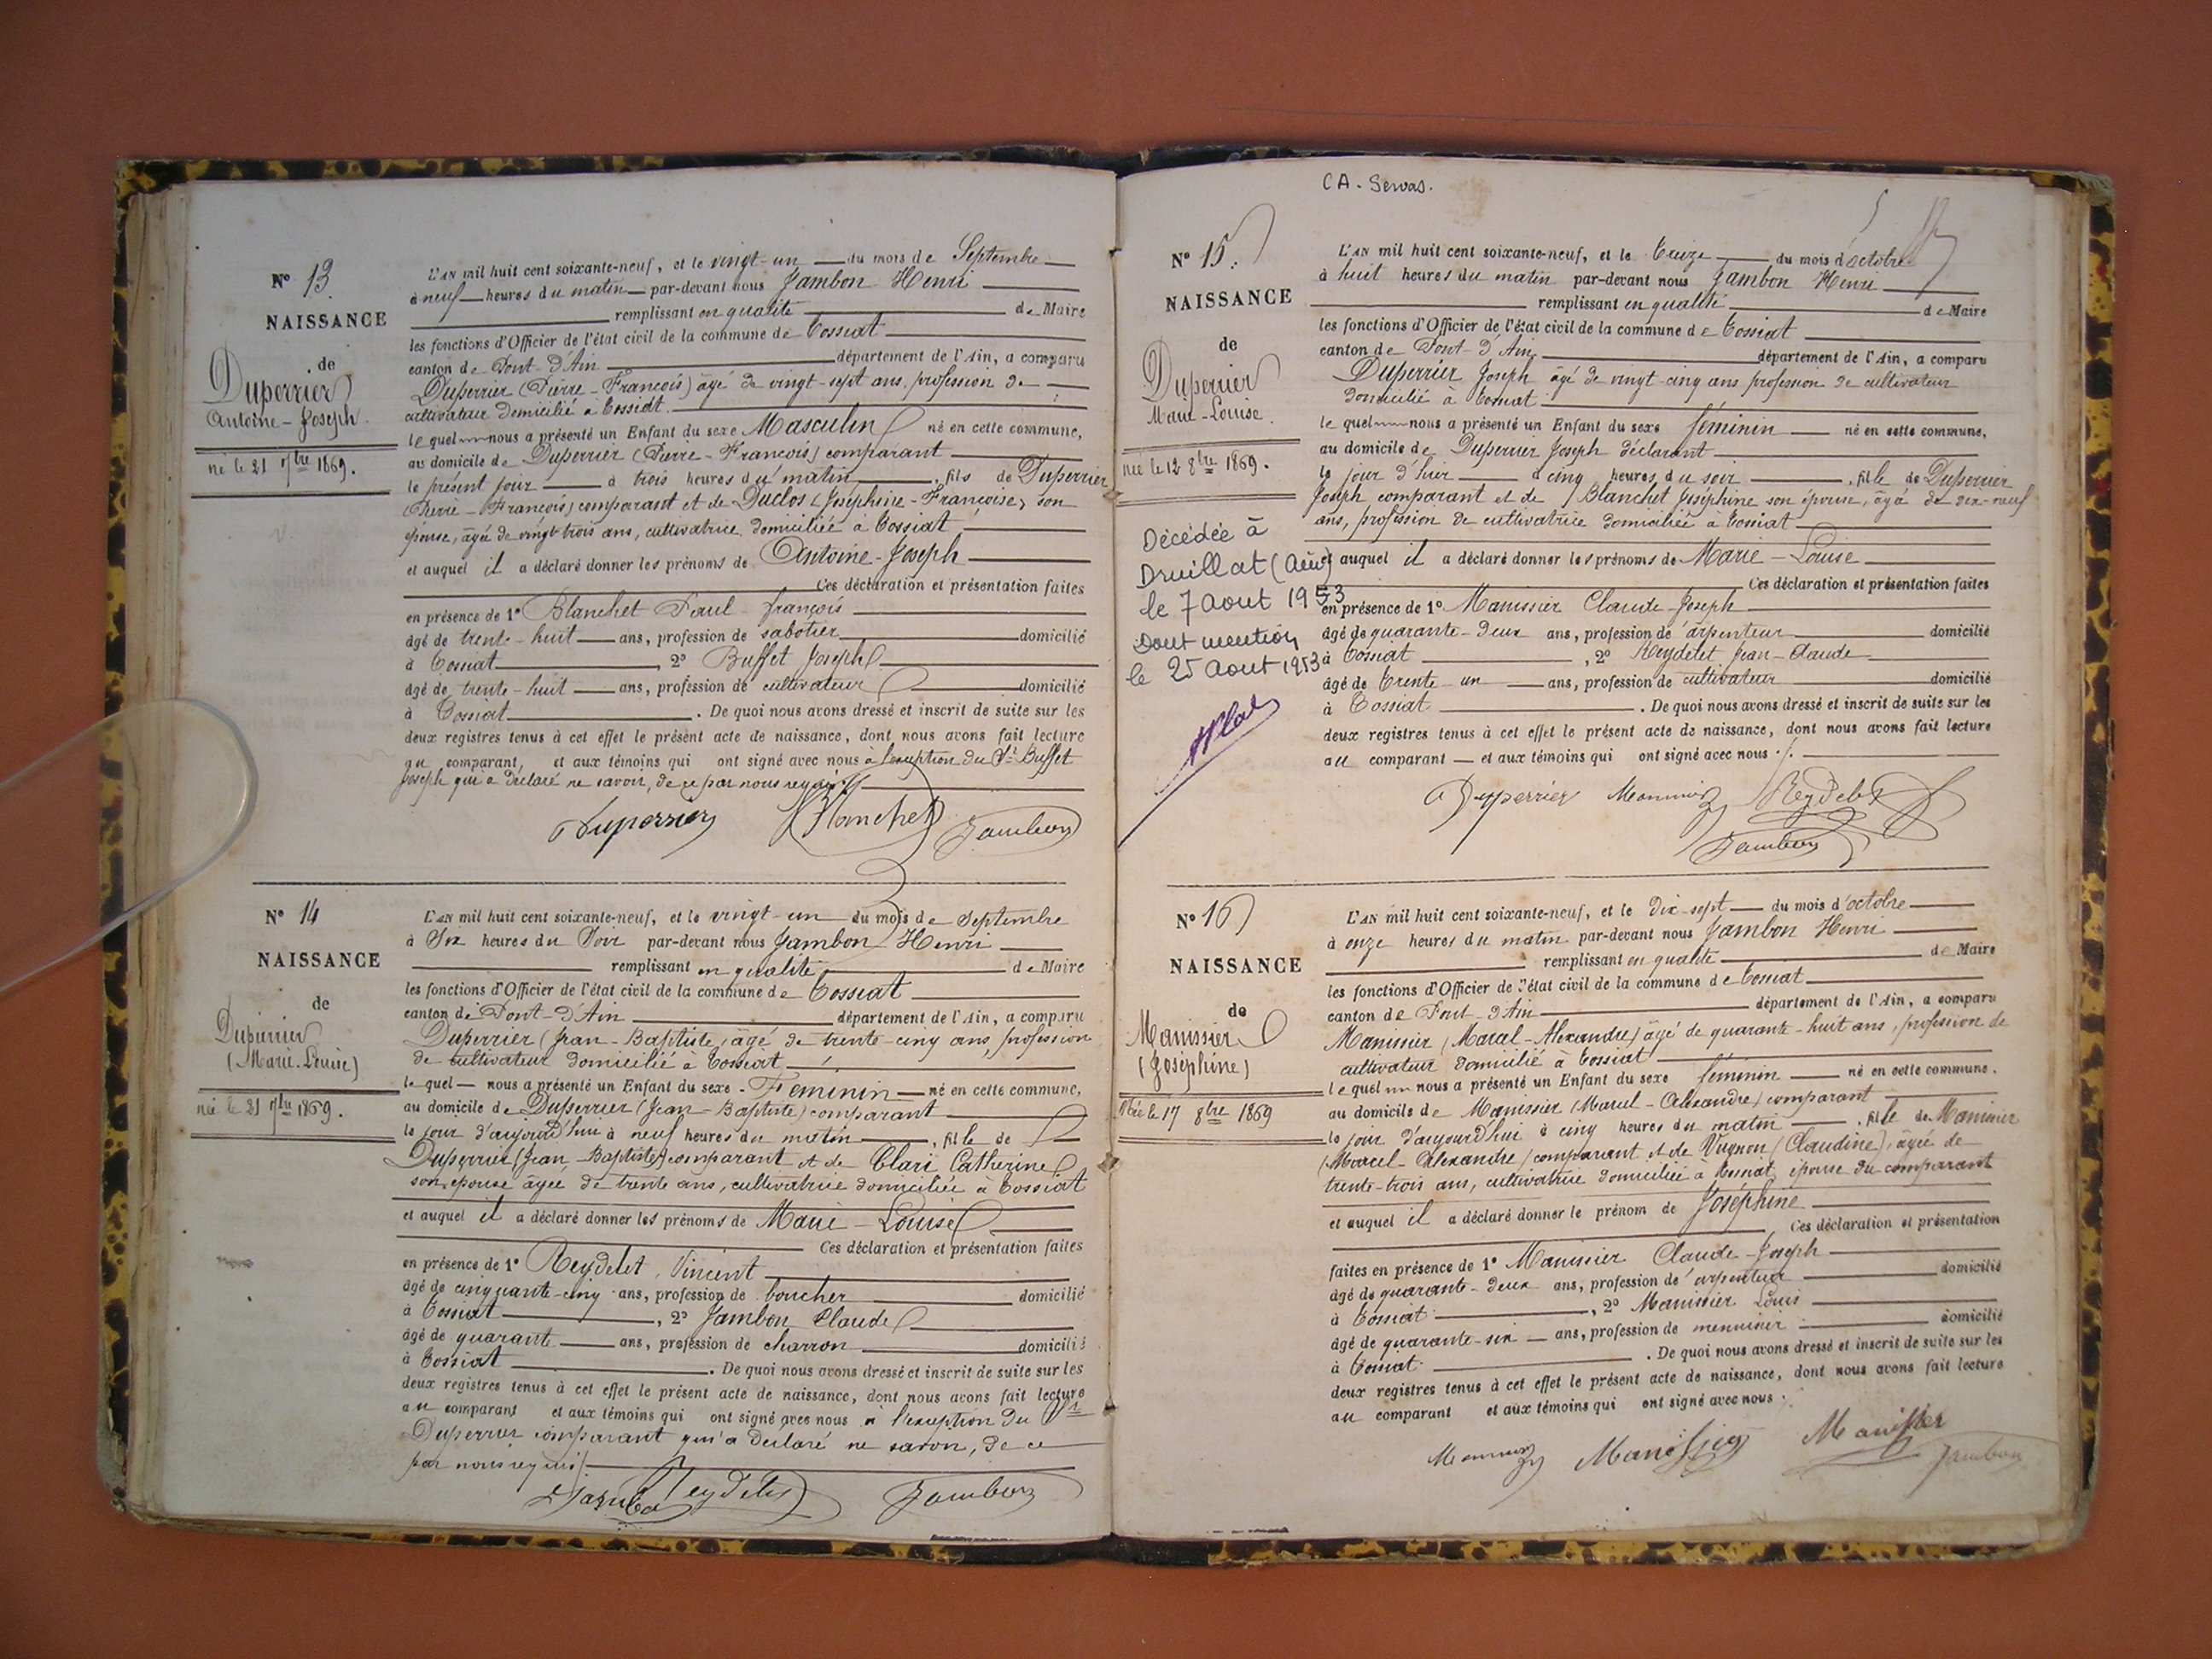 N° 13
NAISSANCE
de
Duperrier
Antoine - Joseph.
né le 21 7bre 1869.
L'AN mil huit cent soixante-neuf, et le vingt-un du mois de Septembre
à neuf heures du matin par-devant nous Jambon Henri
remplissant en qualité de Maire
les fonctions d'Officier de l'état civil de la commune de Tossiat
canton de Pont-d'Ain département de l'Ain, a comparu
Duperrier (Pierre-François) âgé de vingt-sept ans, profession de
cultivateur domicilié à Tossiat.
lequel nous a présenté un Enfant du sexe Masculin né en cette commune,
au domicile de Duperrier (Pierre-François) comparant
le présent jour à trois heures du matin, fils de Duperrier
(Pierre-François) comparant et de Duclos (Joséphine-Françoise) son
épouse, âgée de vingt trois ans, cultivatrice domiciliée à Tossiat
et auquel il a déclaré donner les prénoms de Antoine-Joseph
Ces déclaration et présentation faites
en présence de 1° Blanchet Paul-françois
âgé de trente-huit ans, profession de sabotier domicilié
à Tossiat, 2° Buffet Joseph
âgé de trente-huit ans, profession de cultivateur domicilié
à Tossiat. De quoi nous avons dressé et inscrit de suite sur les
deux registres tenus à cet effet le présent acte de naissance, dont nous avons fait lecture
au comparant, et aux témoins qui ont signé avec nous à l'exception du Sr Buffet
Joseph qui a déclaré ne savoir, de ce par nous requis
Duperrier Blanchet Jambon
N° 14
NAISSANCE
de
Duperrier
(Marie-Louise)
née le 21 7bre 1869.
L'AN mil huit cent soixante-neuf, et le vingt-un du mois de Septembre
à Six heures du Soir par-devant nous Jambon Henri
remplissant en qualité de Maire
les fonctions d'Officier de l'état civil de la commune de Tossiat
canton de Pont-d'Ain département de l'Ain, a comparu
Duperrier (Jean-Baptiste) âgé de trente-cinq ans, profession
de cultivateur domicilié à Tossiat
lequel nous a présenté un Enfant du sexe Féminin né en cette commune,
au domicile de Duperrier (Jean-Baptiste) comparant
le jour d'aujourd'hui à neuf heures du matin, fille de
Duperrier (Jean-Baptiste) comparant et de Clari Catherine
son épouse âgée de trente ans, cultivatrice domiciliée à Tossiat
et auquel il a déclaré donner les prénoms de Marie-Louise
Ces déclaration et présentation faites
en présence de 1° Reydelet, Vincent
âgé de cinquante-cinq ans, profession de boucher domicilié
à Tossiat, 2° Jambon Claude
âgé de quarante ans, profession de charron domicilié
à Tossiat. De quoi nous avons dressé et inscrit de suite sur les
deux registres tenus à cet effet le présent acte de naissance, dont nous avons fait lecture
au comparant et aux témoins qui ont signé avec nous à l'exception du Sr
Duperrier comparant qui a déclaré ne savoir, de ce
par nous requis
Jambon Reydelet Jambon
CA. Servas.
N° 15.
NAISSANCE
de
Duperrier
Marie-Louise.
née le 12 8bre 1869.
Décédée à
Druillat (Ain)
le 7 aout 1953
Dont mention
le 25 Aout 1953
L'AN mil huit cent soixante-neuf, et le treize du mois d'octobre
à huit heures du matin par-devant nous Jambon Henri
remplissant en qualité de Maire
les fonctions d'Officier de l'état civil de la commune de Tossiat
canton de Pont-d'Ain département de l'Ain, a comparu
Duperrier Joseph âgé de vingt-cinq ans profession de cultivateur
domicilié à Tossiat
lequel nous a présenté un Enfant du sexe féminin né en cette commune,
au domicile de Duperrier Joseph déclarant
le jour d'hier à cinq heures du soir, fille de Duperrier
Joseph comparant et de Blanchet Joséphine son épouse, âgé de dix-neuf
ans, profession de cultivatrice domiciliée à Tossiat
et auquel il a déclaré donner les prénoms de Marie-Louise
Ces déclaration et présentation faites
en présence de 1° Manissier Claude-Joseph
âgé de quarante-deux ans, profession de arpenteur domicilié
à Tossiat, 2° Reydelet Jean-Claude
âgé de trente-un ans, profession de cultivateur domicilié
à Tossiat. De quoi nous avons dressé et inscrit de suite sur les
deux registres tenus à cet effet le présent acte de naissance, dont nous avons fait lecture
au comparant et aux témoins qui ont signé avec nous.
Duperrier Manissier Reydelet
Jambon
N° 16
NAISSANCE
de
Manissier
(Joséphine)
Née le 17 8bre 1869
L'AN mil huit cent soixante-neuf, et le Dix-sept du mois d'octobre
à onze heures du matin par-devant nous Jambon Henri
remplissant en qualité de Maire
les fonctions d'Officier de l'état civil de la commune de Tossiat
canton de Pont-d'Ain département de l'Ain, a comparu
Manissier (Marcel-Alexandre) âgé de quarante-huit ans, profession de
cultivateur domicilié à Tossiat
lequel nous a présenté un Enfant du sexe féminin né en cette commune.
au domicile de Manissier (Marcel-Alexandre) comparant
le jour d'aujourd'hui à cinq heures du matin, fille de Manissier
(Marcel-Alexandre) comparant et de Vugnon (Claudine), âgée de
trente-trois ans, cultivatrice domiciliée à Tossiat, épouse du comparant
et auquel il a déclaré donner le prénom de Joséphine
Ces déclaration et présentation
faites en présence de 1° Manissier Claude-Joseph
âgé de quarante-deux ans, profession de arpenteur domicilié
à Tossiat, 2° Manissier Louis
âgé de quarante-six ans, profession de menuisier domicilié
à Tossiat. De quoi nous avons dressé et inscrit de suite sur les
deux registres tenus à cet effet le présent acte de naissance, dont nous avons fait lecture
au comparant et aux témoins qui ont signé avec nous.
Manissier Manissier Manissier Jambon